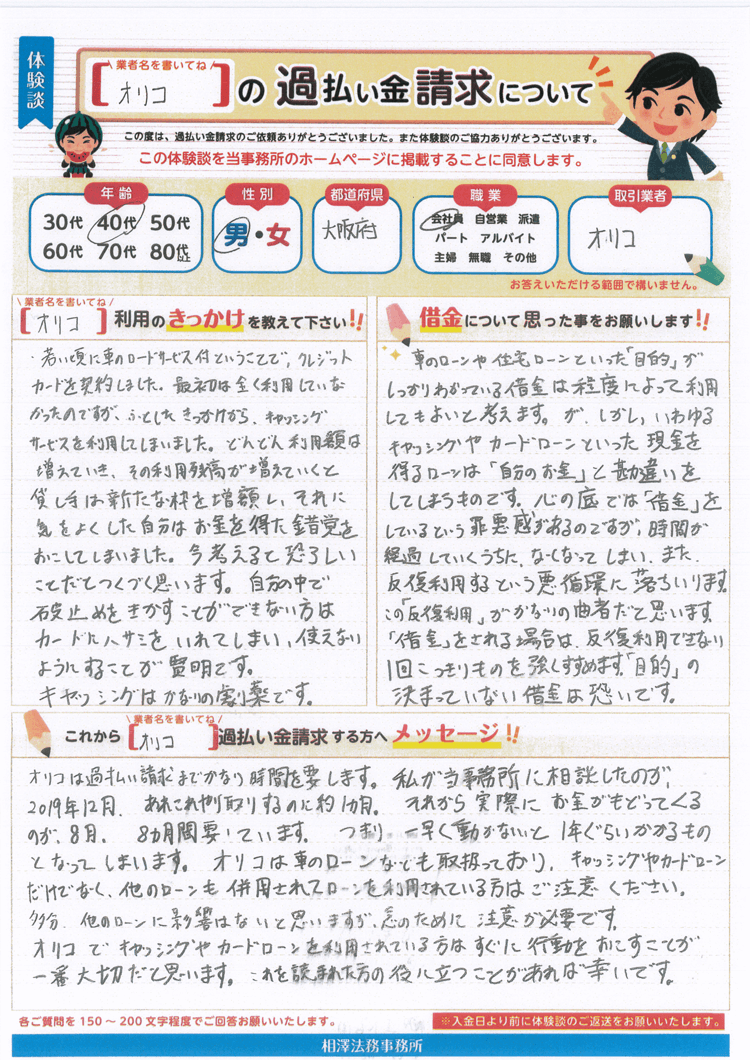 体験談
\ 業者名を書いてね /
[オリコ]の過払い金請求について
この度は、過払い金請求のご依頼ありがとうございました。また体験談のご協力ありがとうございます。
この体験談を当事務所のホームページに掲載することに同意します。
年齢
30代 40代 50代
60代 70代 80代以上
性別
男・女
都道府県
大阪府
職業
会社員 自営業 派遣
パート アルバイト
主婦 無職 その他
取引業者
オリコ
お答えいただける範囲で構いません。
\ 業者名を書いてね /
[オリコ]利用のきっかけを教えて下さい!!
・若い頃に車のロードサービス付ということで、クレジット
カードを契約しました。最初は全く利用していな
かったのですが、ふとしたきっかけから、キャッシング
サービスを利用してしまいました。どんどん利用額は
増えていき、その利用残高が増えていくと
貸し手は新たな枠を増額し、それに
気をよくした自分はお金を得た錯覚を
おこしてしまいました。今考えると恐ろしい
ことだとつくづく思います。自分の中で
歯止めをきかすことができない方は
カードにハサミをいれてしまい、使えない
ようにすることが賢明です。
キャッシングはかなりの劇薬です。
借金について思った事をお願いします!!
車のローンや住宅ローンといった「目的」が
しっかりわかっている借金は程度によって利用
してもよいと考えます。が、しかし、いわゆる
キャッシングやカードローンといった現金を
得るローンは「自分のお金」と勘違いを
してしまうものです。心の底では「借金」を
しているという罪悪感があるのですが、時間が
経過していくうちに、なくなってしまい、また
反復利用するという悪循環に落ちいります。
この「反復利用」がかなりの曲者だと思います。
「借金」をされる場合は、反復利用できない
1回こっきりものを強くすすめます。「目的」の
決まっていない借金は恐いです。
\ 業者名を書いてね /
これから[オリコ]過払い金請求する方へメッセージ!!
オリコは過払い請求までかなり時間を要します。私が当事務所に相談したのが、
2019年12月。あれこれやり取りするのに約1カ月。それから実際にお金がもどってくる
のが、8月。8カ月間要しています。つまり、早く動かないと1年ぐらいかかるもの
となってしまいます。オリコは車のローンなども取扱っており、キャッシングやカードローン
だけでなく、他のローンも併用されてローンを利用されている方はご注意ください。
多分、他のローンに影響はないと思いますが、念のために注意が必要です。
オリコでキャッシングやカードローンを利用されている方はすぐに行動をおこすことが
一番大切だと思います。これを読まれた方の役に立つことがあれば幸いです。
各ご質問を150～200文字程度でご回答お願いいたします。
※入金日より前に体験談のご返送をお願いいたします。
相澤法務事務所